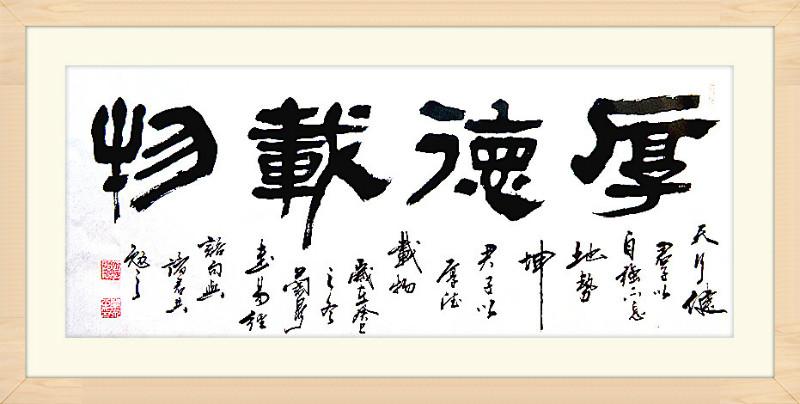 厚德載物
天行健
君子以
自強不息
地勢
坤
君子以
厚德
載物
歲在癸巳
之冬
書易經
語句與
諸君共
勉之